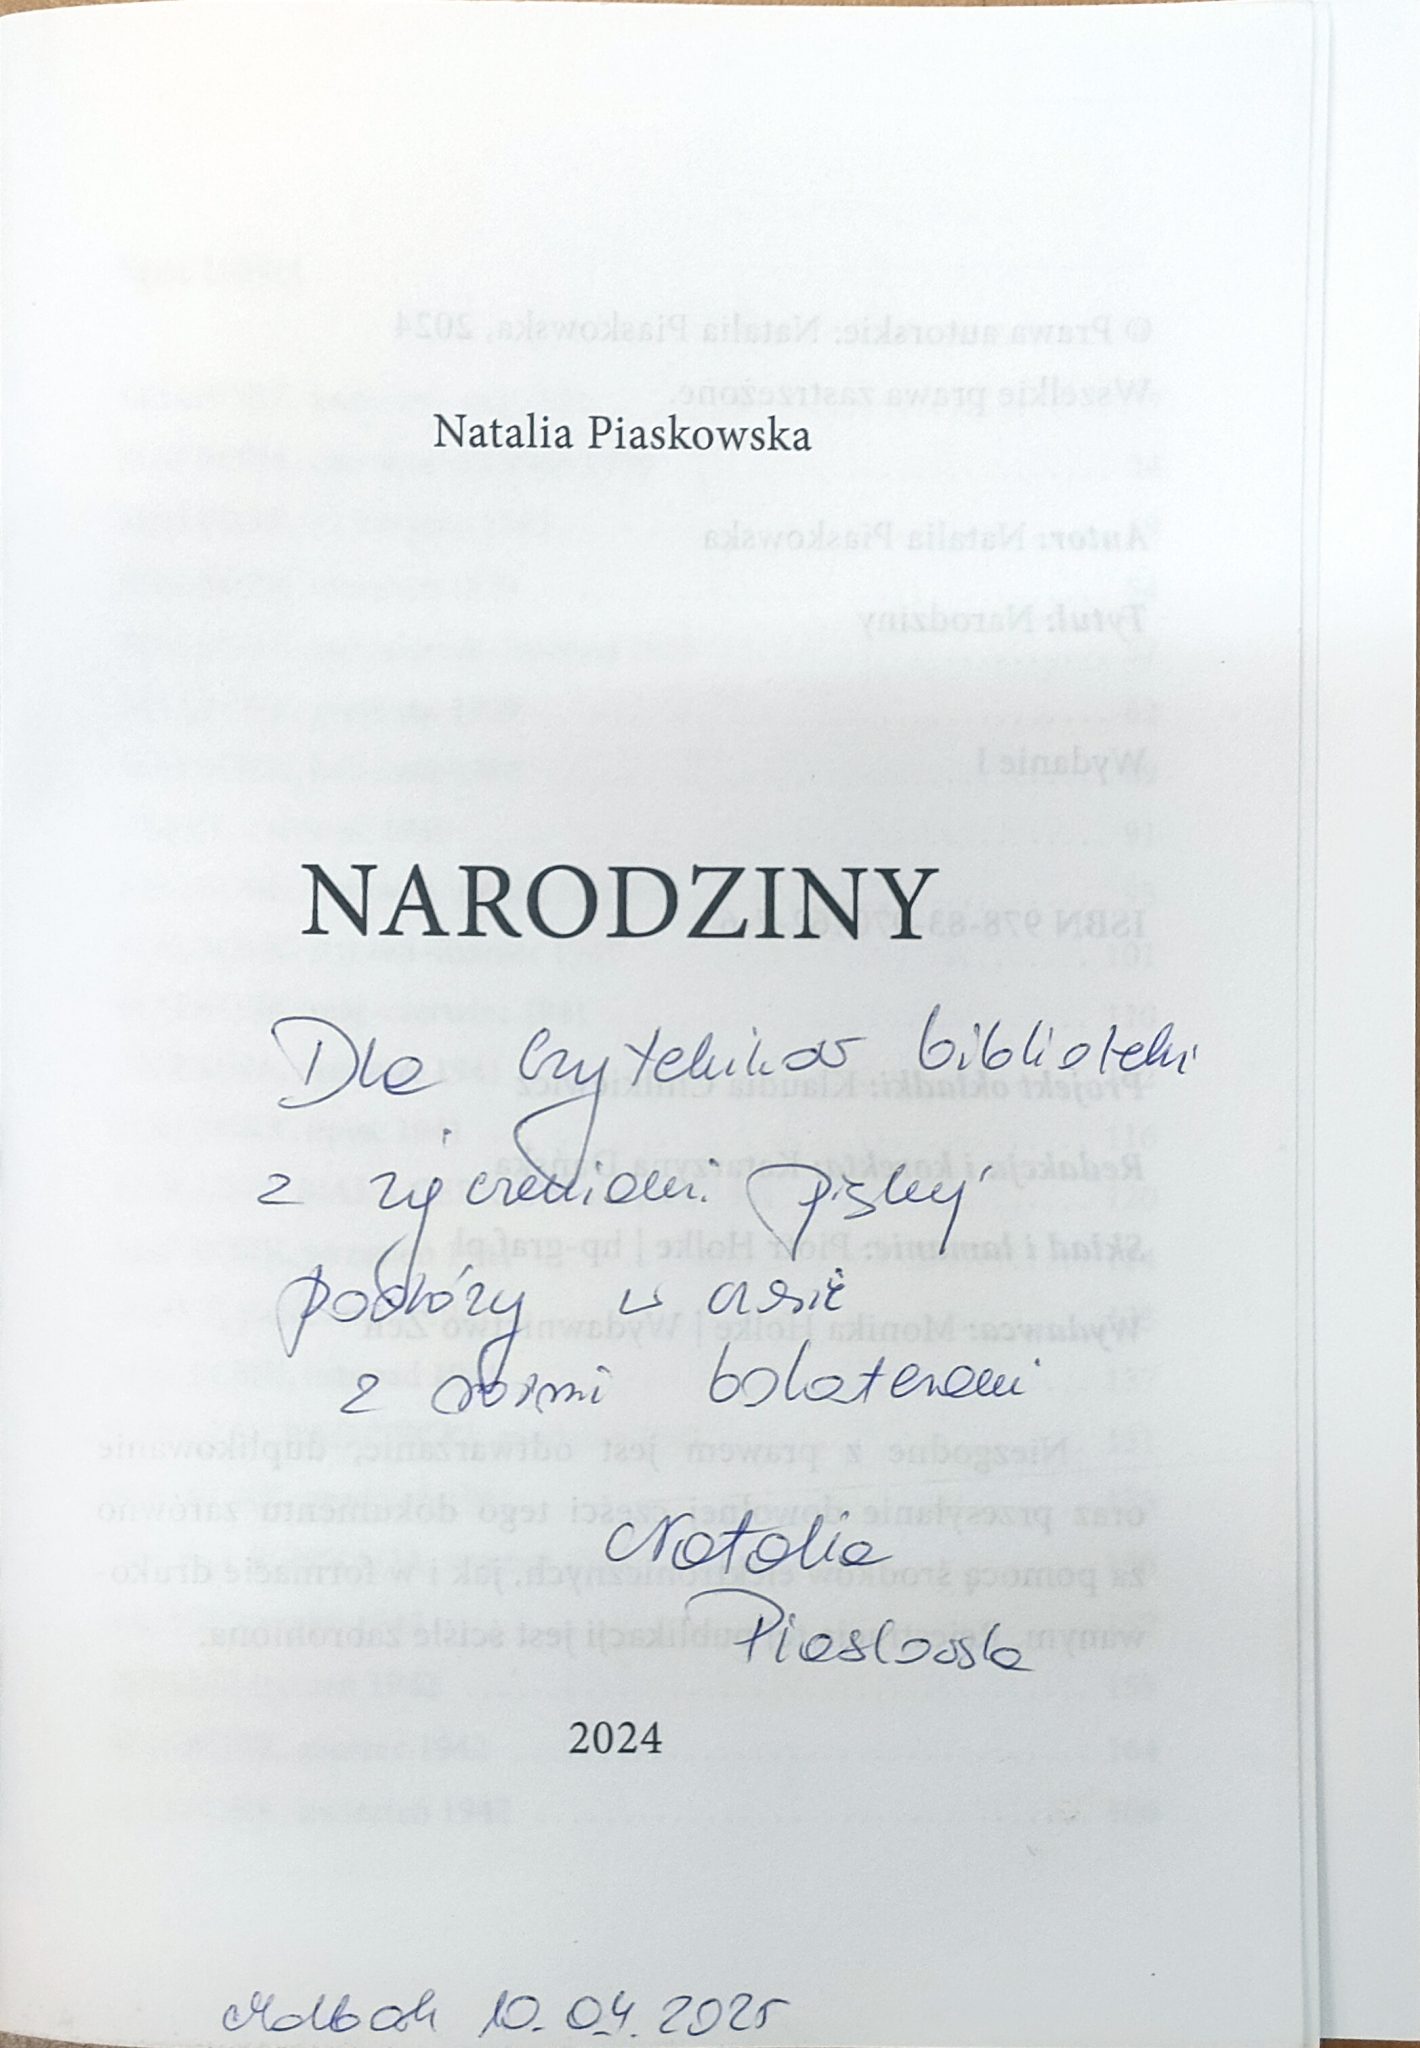 Natalia Piaskowska
NARODZINY
Dla czytelników biblioteki
z życzeniami pięknej
podróży w czasie
z moimi bohaterami
Natalia
Piaskowska
2024
Malbork 10.04.2025